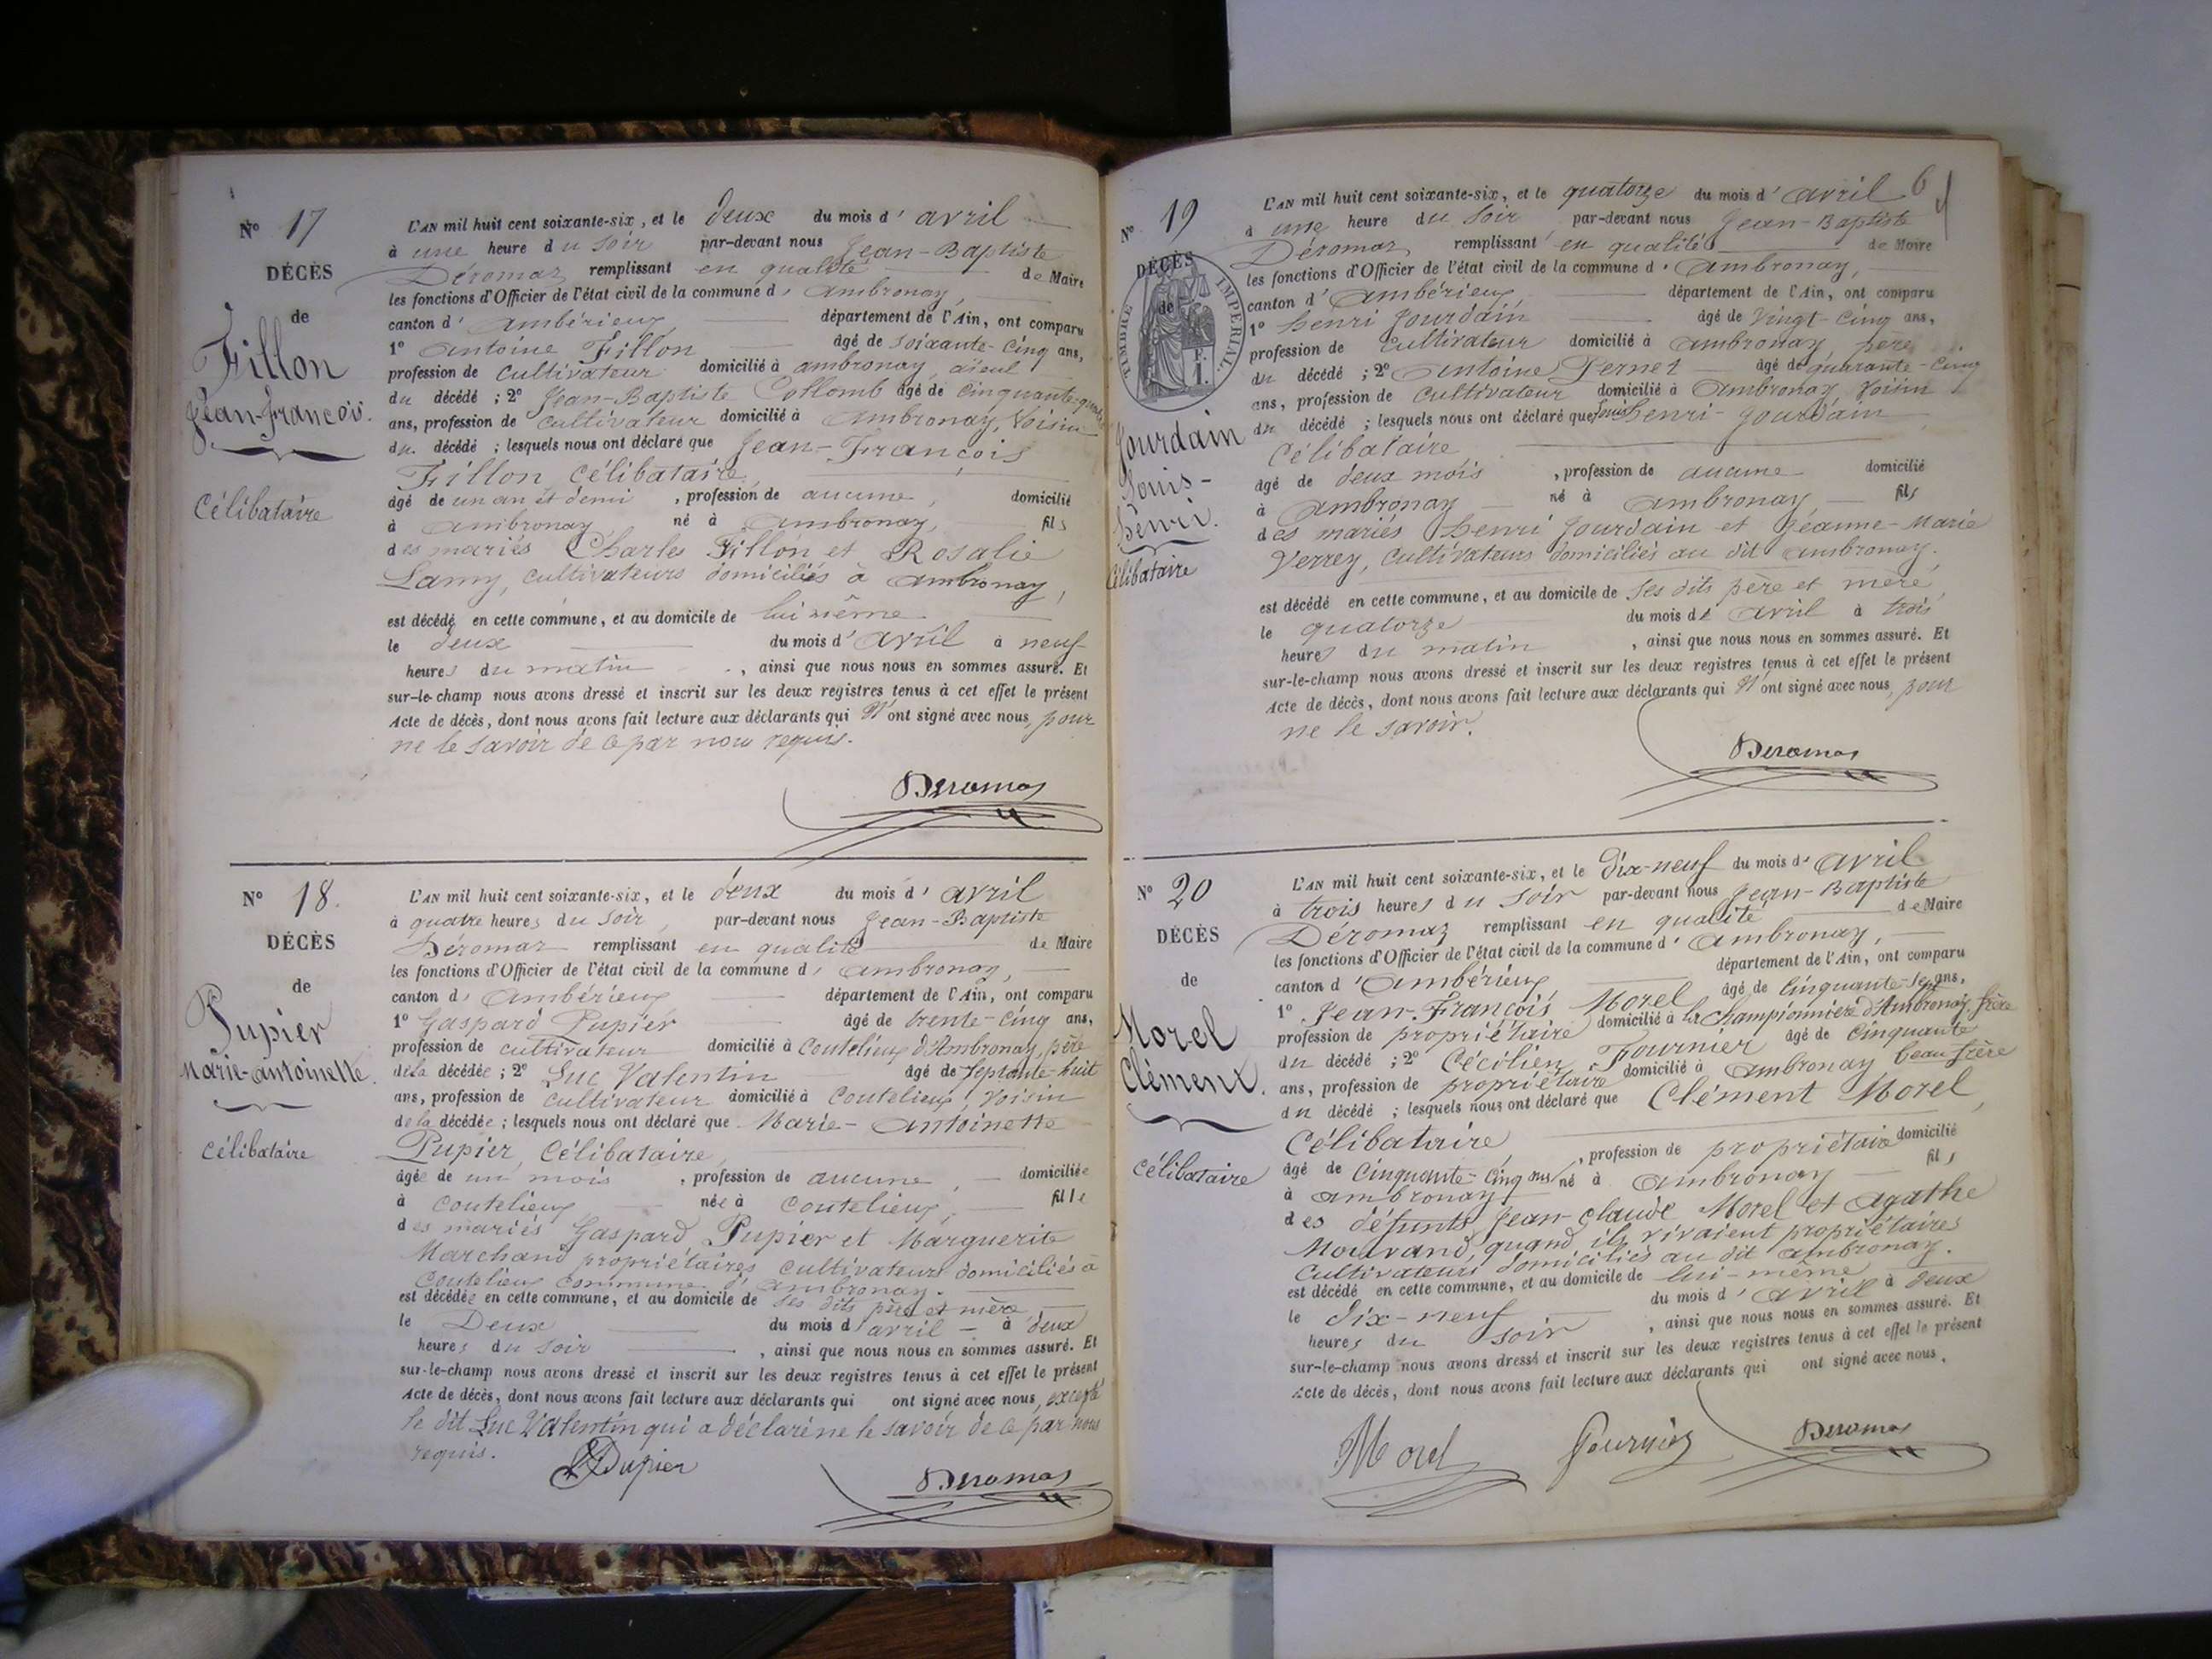 N° 17
DÉCÈS
de
Fillon
Jean-François.
Célibataire
L'AN mil huit cent soixante-six, et le deux du mois d' avril
à une heure du soir par-devant nous Jean-Baptiste
Déromas remplissant en qualité de Maire
les fonctions d'Officier de l'état civil de la commune d' Ambronay,
canton d' Ambérieux département de l'Ain, ont comparu
1° Antoine Fillon âgé de soixante-cinq ans,
profession de cultivateur domicilié à ambronay, aïeul
du décédé ; 2° Jean-Baptiste Collomb âgé de cinquante-quatre
ans, profession de cultivateur domicilié à Ambronay, Voisin
du décédé ; lesquels nous ont déclaré que Jean-François
Fillon célibataire,
âgé de un an et demi , profession de aucune, domicilié
à Ambronay né à Ambronay, fils
des mariés Charles Fillon et Rosalie
Lamy, cultivateurs domiciliés à Ambronay,
est décédé en cette commune, et au domicile de lui même
le deux du mois d' Avril à neuf
heures du matin , ainsi que nous nous en sommes assuré. Et
sur-le-champ nous avons dressé et inscrit sur les deux registres tenus à cet effet le présent
Acte de décès, dont nous avons fait lecture aux déclarants qui N'ont signé avec nous, pour
ne le savoir de ce par nous requis.
Deromas
N° 18.
DÉCÈS
de
Pupier
Marie-Antoinette.
Célibataire
L'AN mil huit cent soixante-six, et le deux du mois d' avril
à quatre heures du soir, par-devant nous Jean-Baptiste
Déromas remplissant en qualité de Maire
les fonctions d'Officier de l'état civil de la commune d' Ambronay,
canton d' Ambérieux département de l'Ain, ont comparu
1° Gaspard Pupier âgé de trente-cinq ans,
profession de cultivateur domicilié à Coutelieux d'Ambronay, père
de la décédée ; 2° Luc Valentin âgé de septante-huit
ans, profession de cultivateur domicilié à Coutelieux, Voisin
de la décédée ; lesquels nous ont déclaré que Marie-Antoinette
Pupier, Célibataire,
âgée de un mois , profession de aucune, domiciliée
à Coutelieux née à Coutelieux, fille
des mariés Gaspard Pupier et Marguerite
Marchand propriétaires cultivateurs domiciliés à
Coutelieux commune d'Ambronay.
est décédée en cette commune, et au domicile de ses dits père et mère,
le Deux du mois d' avril à deux
heures du soir , ainsi que nous nous en sommes assuré. Et
sur-le-champ nous avons dressé et inscrit sur les deux registres tenus à cet effet le présent
Acte de décès, dont nous avons fait lecture aux déclarants qui ont signé avec nous, excepté
le dit Luc Valentin qui a déclaré ne le savoir de ce par nous
requis.
Pupier
Deromas
6
N° 19
DÉCÈS
de
TIMBRE IMPERIAL
F.
1.
Jourdain
Louis-
henri.
Célibataire
L'AN mil huit cent soixante-six, et le quatorze du mois d' avril
à une heure du soir par-devant nous Jean-Baptiste
Déromas remplissant en qualité de Maire
les fonctions d'Officier de l'état civil de la commune d' Ambronay,
canton d' Ambérieux département de l'Ain, ont comparu
1° henri Jourdain âgé de Vingt-cinq ans,
profession de Cultivateur domicilié à Ambronay, père
du décédé ; 2° Antoine Pernet âgé de quarante-cinq
ans, profession de cultivateur domicilié à Ambronay Voisin
du décédé ; lesquels nous ont déclaré que Louis henri-Jourdain
Célibataire
âgé de deux mois , profession de aucune domicilié
à Ambronay né à Ambronay fils
des mariés henri Jourdain et Jeanne-Marie
Verrey, cultivateurs domiciliés au dit Ambronay.
est décédé en cette commune, et au domicile de ses dits père et mère,
le quatorze du mois de avril à trois
heures du matin , ainsi que nous nous en sommes assuré. Et
sur-le-champ nous avons dressé et inscrit sur les deux registres tenus à cet effet le présent
Acte de décès, dont nous avons fait lecture aux déclarants qui N'ont signé avec nous, pour
ne le savoir.
Deromas
N° 20
DÉCÈS
de
Morel
Clément.
Célibataire
L'AN mil huit cent soixante-six, et le dix-neuf du mois d' avril
à trois heures du soir par-devant nous Jean-Baptiste
Déromaz remplissant en qualité de Maire
les fonctions d'Officier de l'état civil de la commune d' Ambronay,
canton d' Ambérieux, département de l'Ain, ont comparu
1° Jean-François Morel âgé de cinquante-sept ans,
profession de propriétaire domicilié à la Championnière d'Ambronay, frère
du décédé ; 2° Cécilien Fournier âgé de cinquante
ans, profession de propriétaire domicilié à Ambronay beau frère
du décédé ; lesquels nous ont déclaré que Clément Morel,
Célibataire
âgé de cinquante-cinq ans , profession de propriétaire domicilié
à Ambronay né à Ambronay fils
des défunts Jean-Claude Morel et Agathe
Mouvand, quand ils vivaient propriétaires
cultivateurs domiciliés au dit Ambronay.
est décédé en cette commune, et au domicile de lui-même
le dix-neuf du mois d' Avril à deux
heures du soir , ainsi que nous nous en sommes assuré. Et
sur-le-champ nous avons dressé et inscrit sur les deux registres tenus à cet effet le présent
Acte de décès, dont nous avons fait lecture aux déclarants qui ont signé avec nous.
Morel Fournier Deromas